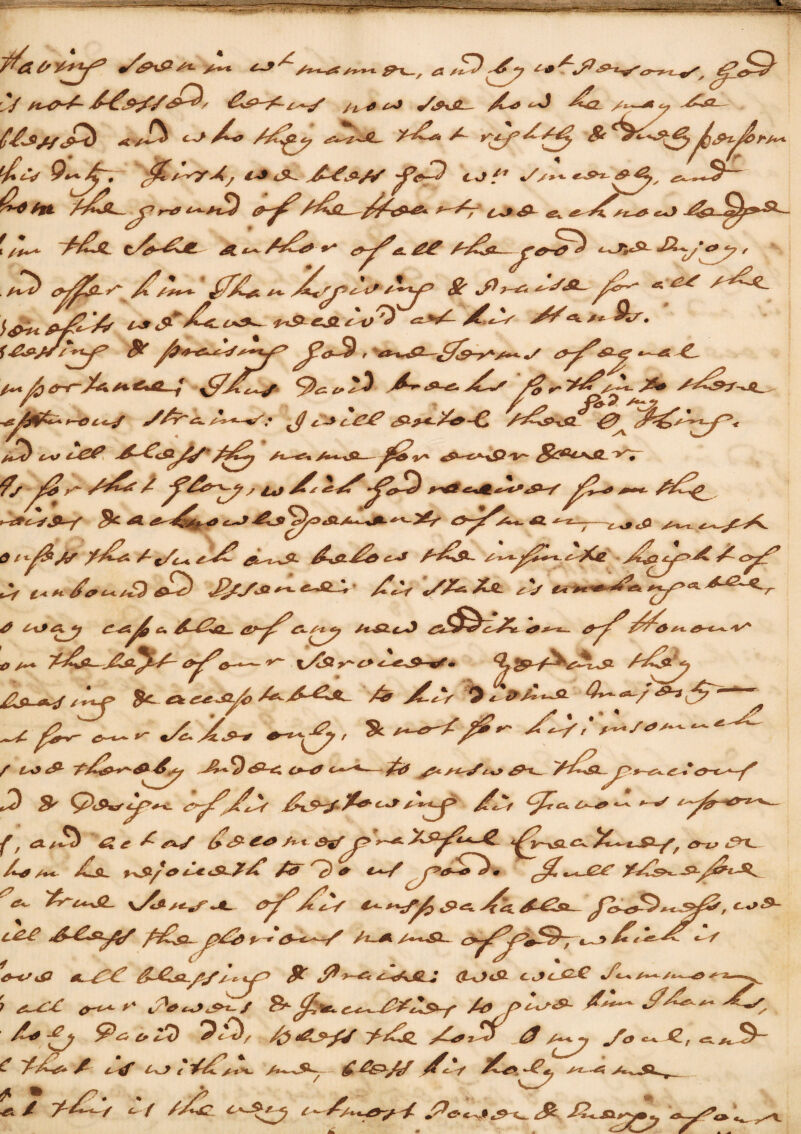 Having seen in wt manner, and by wt Persons, God
is not blessed, let us now see how he may be
blessed and who they are that rightly & duely perform
this Duty. First, we bless God wn sincerely, and
from the ground of the Heart, we acknowledge
him the Sole author of all the good we Enjoy,
and offer him Thanksgiving & Praise for all the
Benefits we have receiv'd at his Hands.
Blessing & praising God, are Terms of equal
importance; Thus David breaks forth into these
rapturous strains: I will extol thee God my O King,
and will bless thy name for ever & ever.
As for that Glory, which God receives from the
raises & acknowledgements of men, we must
onfess that such are below the infinite height of
is unbounded Essence: his State is unchangable,
o way capable of any new addition of Honour
om the best of our Services. Yet are they
leasing & acceptable to his Divine Majesty
ut for our Sakes only, & not for his; insomuch
s we thereby Endeavour to answer the gracious
d & Design of his bestowing his Favours upon
s, and act as becomes grateful Creatures, over
hom he rejoiceth to do us good. Full therefore
f a true Sense of his unspeakable Goodness, we
ill bless the glorious name of God, which is
ove all blessing & Praise: we will Summon
p all our Powers & Faculties to give him Thanks,
holy David did, Bless the Lord O my Soul, and
l that is within me, bless his holy name.
at this is the very utmost Power & Energy of our